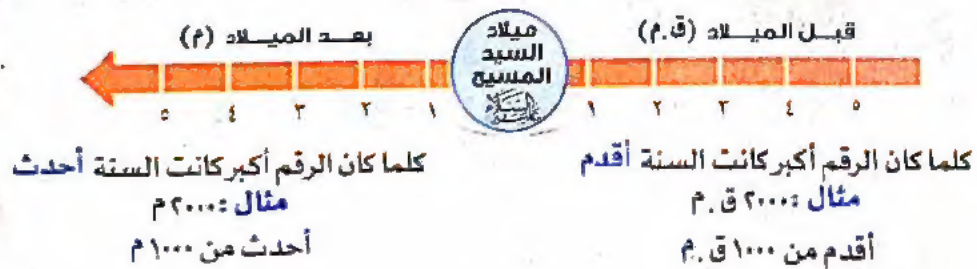 قبل الميلاد (ق.م)
ميلاد
السيد
المسيح
عليه السلام
بعد الميلاد (م)
٥ ٤ ٣ ٢ ١
١ ٢ ٣ ٤ ٥
كلما كان الرقم أكبر كانت السنة أقدم
مثال : ٢٠٠٠ ق.م
أقدم من ١٠٠٠ ق.م
كلما كان الرقم أكبر كانت السنة أحدث
مثال : ٢٠٠٠ م
أحدث من ١٠٠٠ م